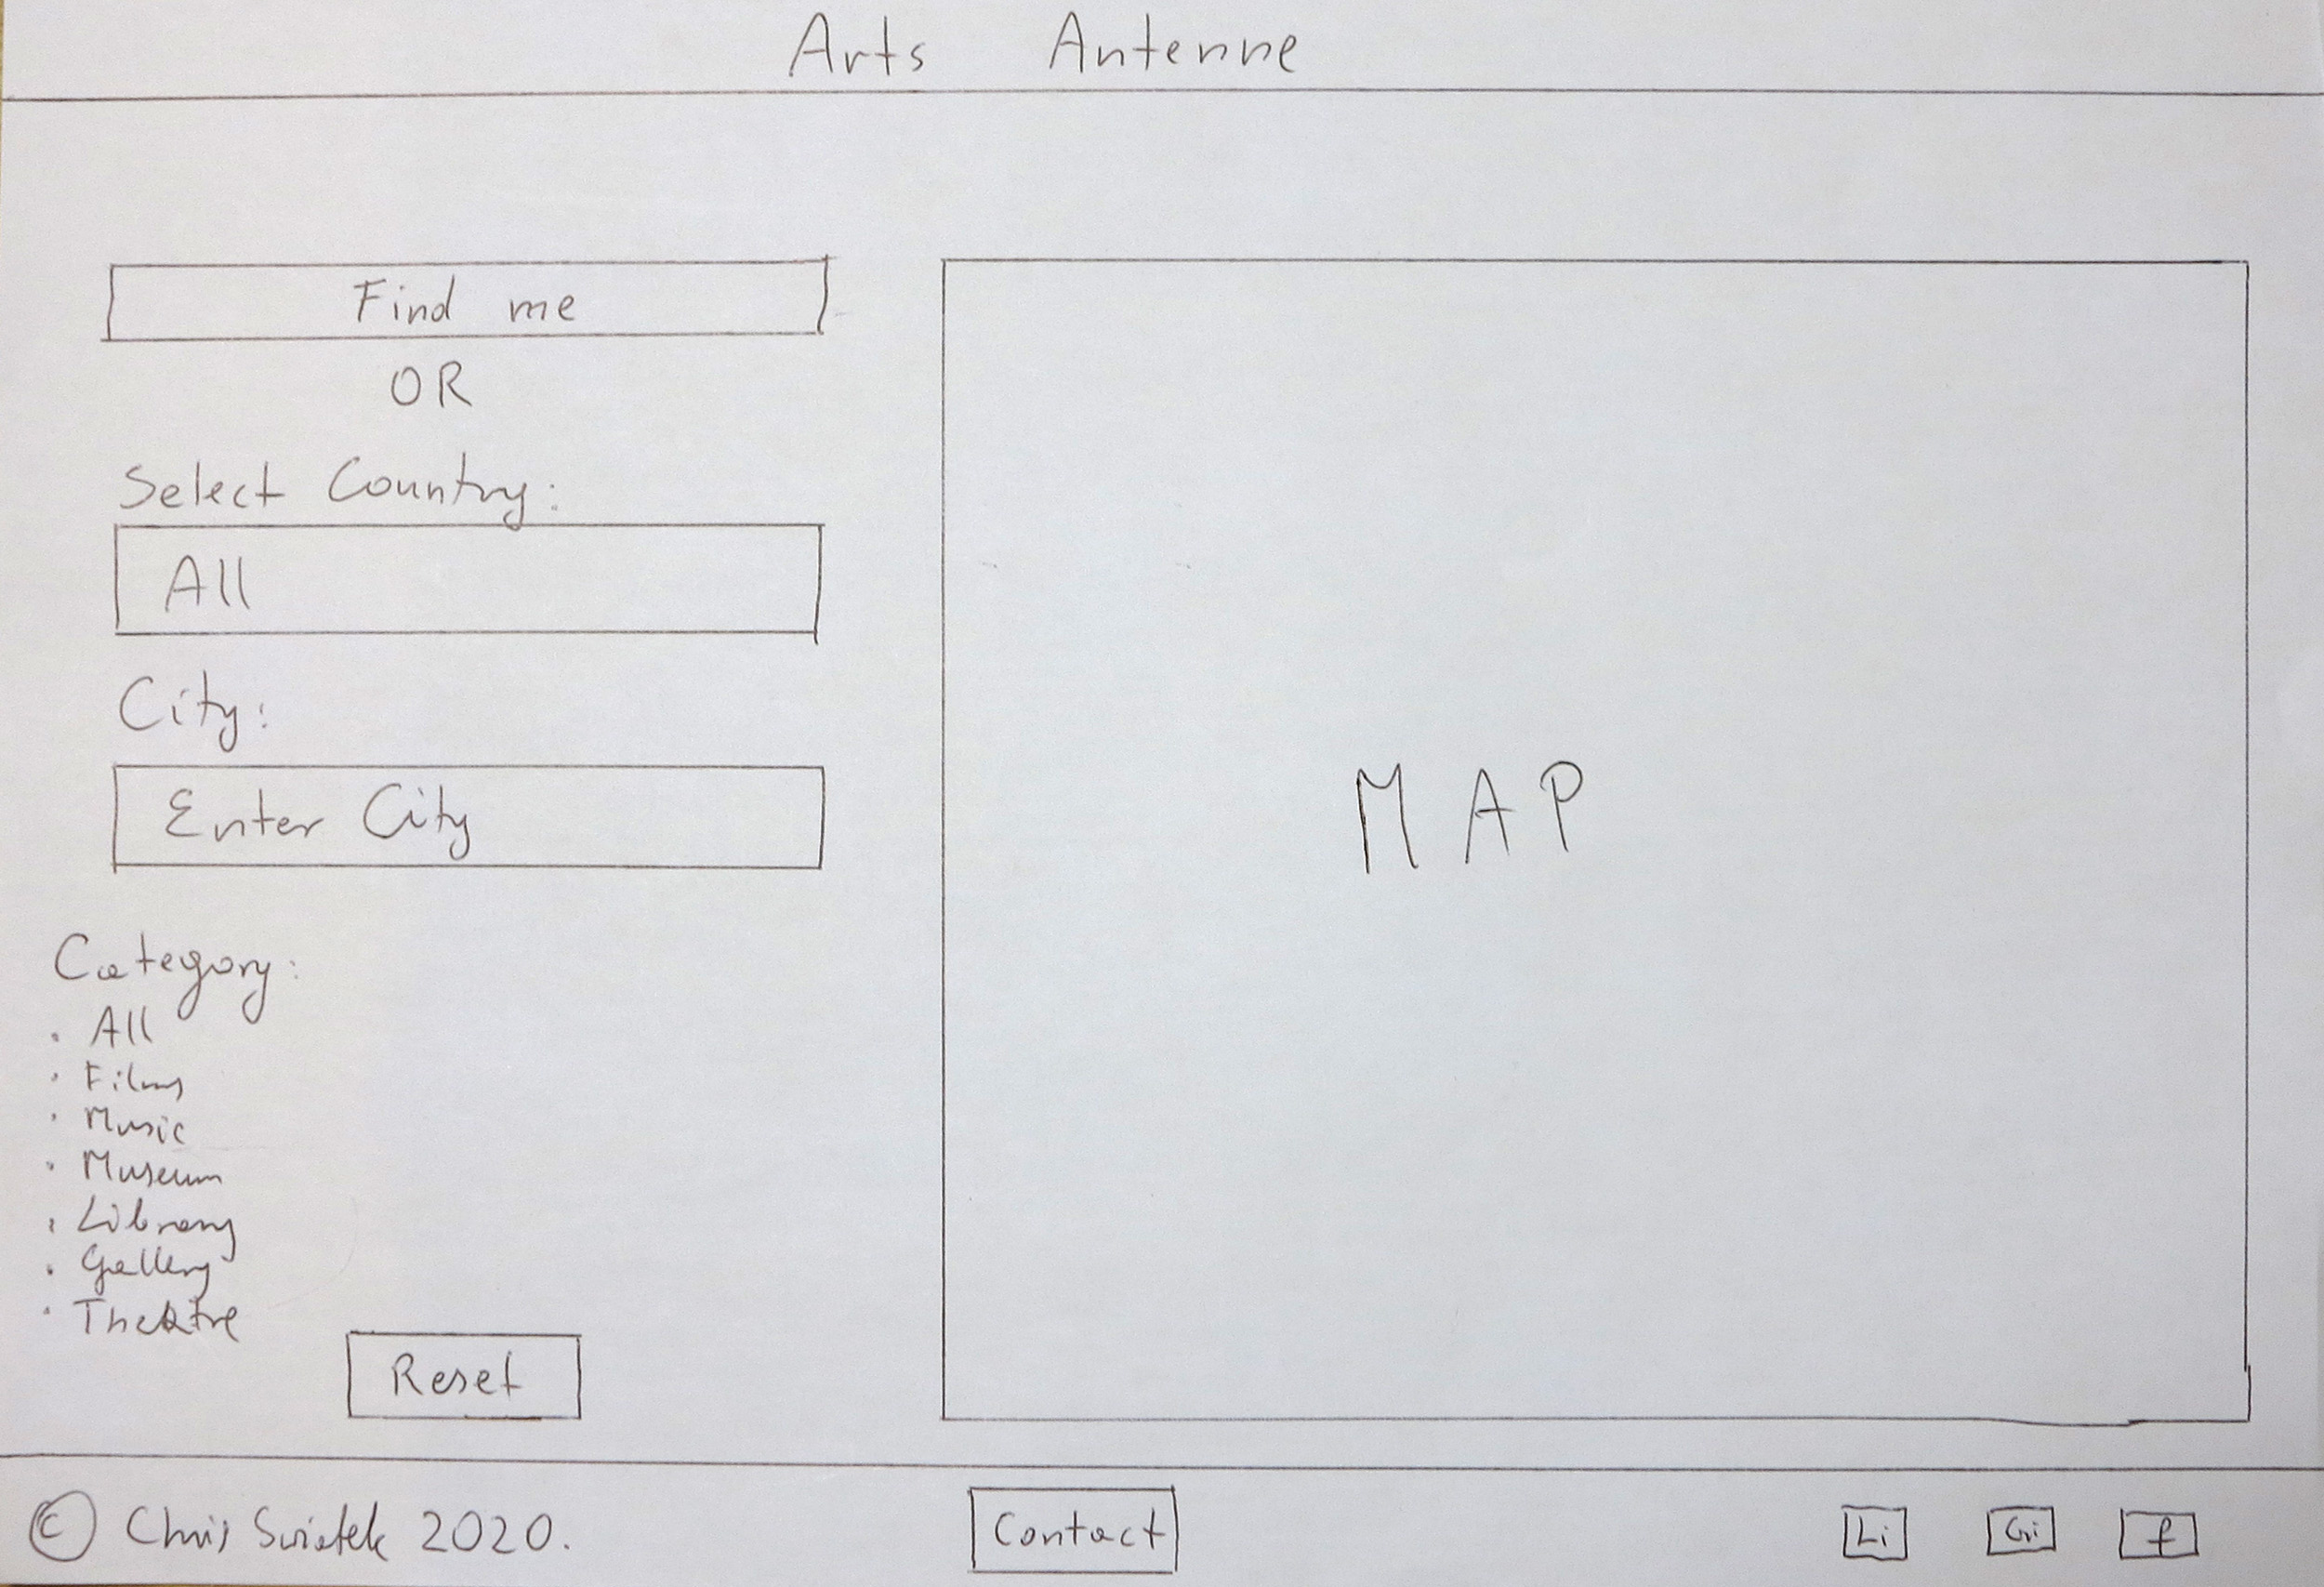 Arts Antenne
Find me
OR
Select Country:
All
City:
Enter City
Category:
· All
· Films
· Music
· Museum
· Library
· Gallery
· Theatre
Reset
MAP
© Chris Swiatek 2020.
Contact
Li
Gi
f